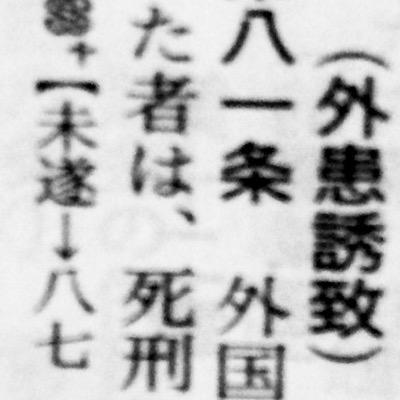 （外患誘致）
八一条　外国
た者は、死刑
【未遂→八七